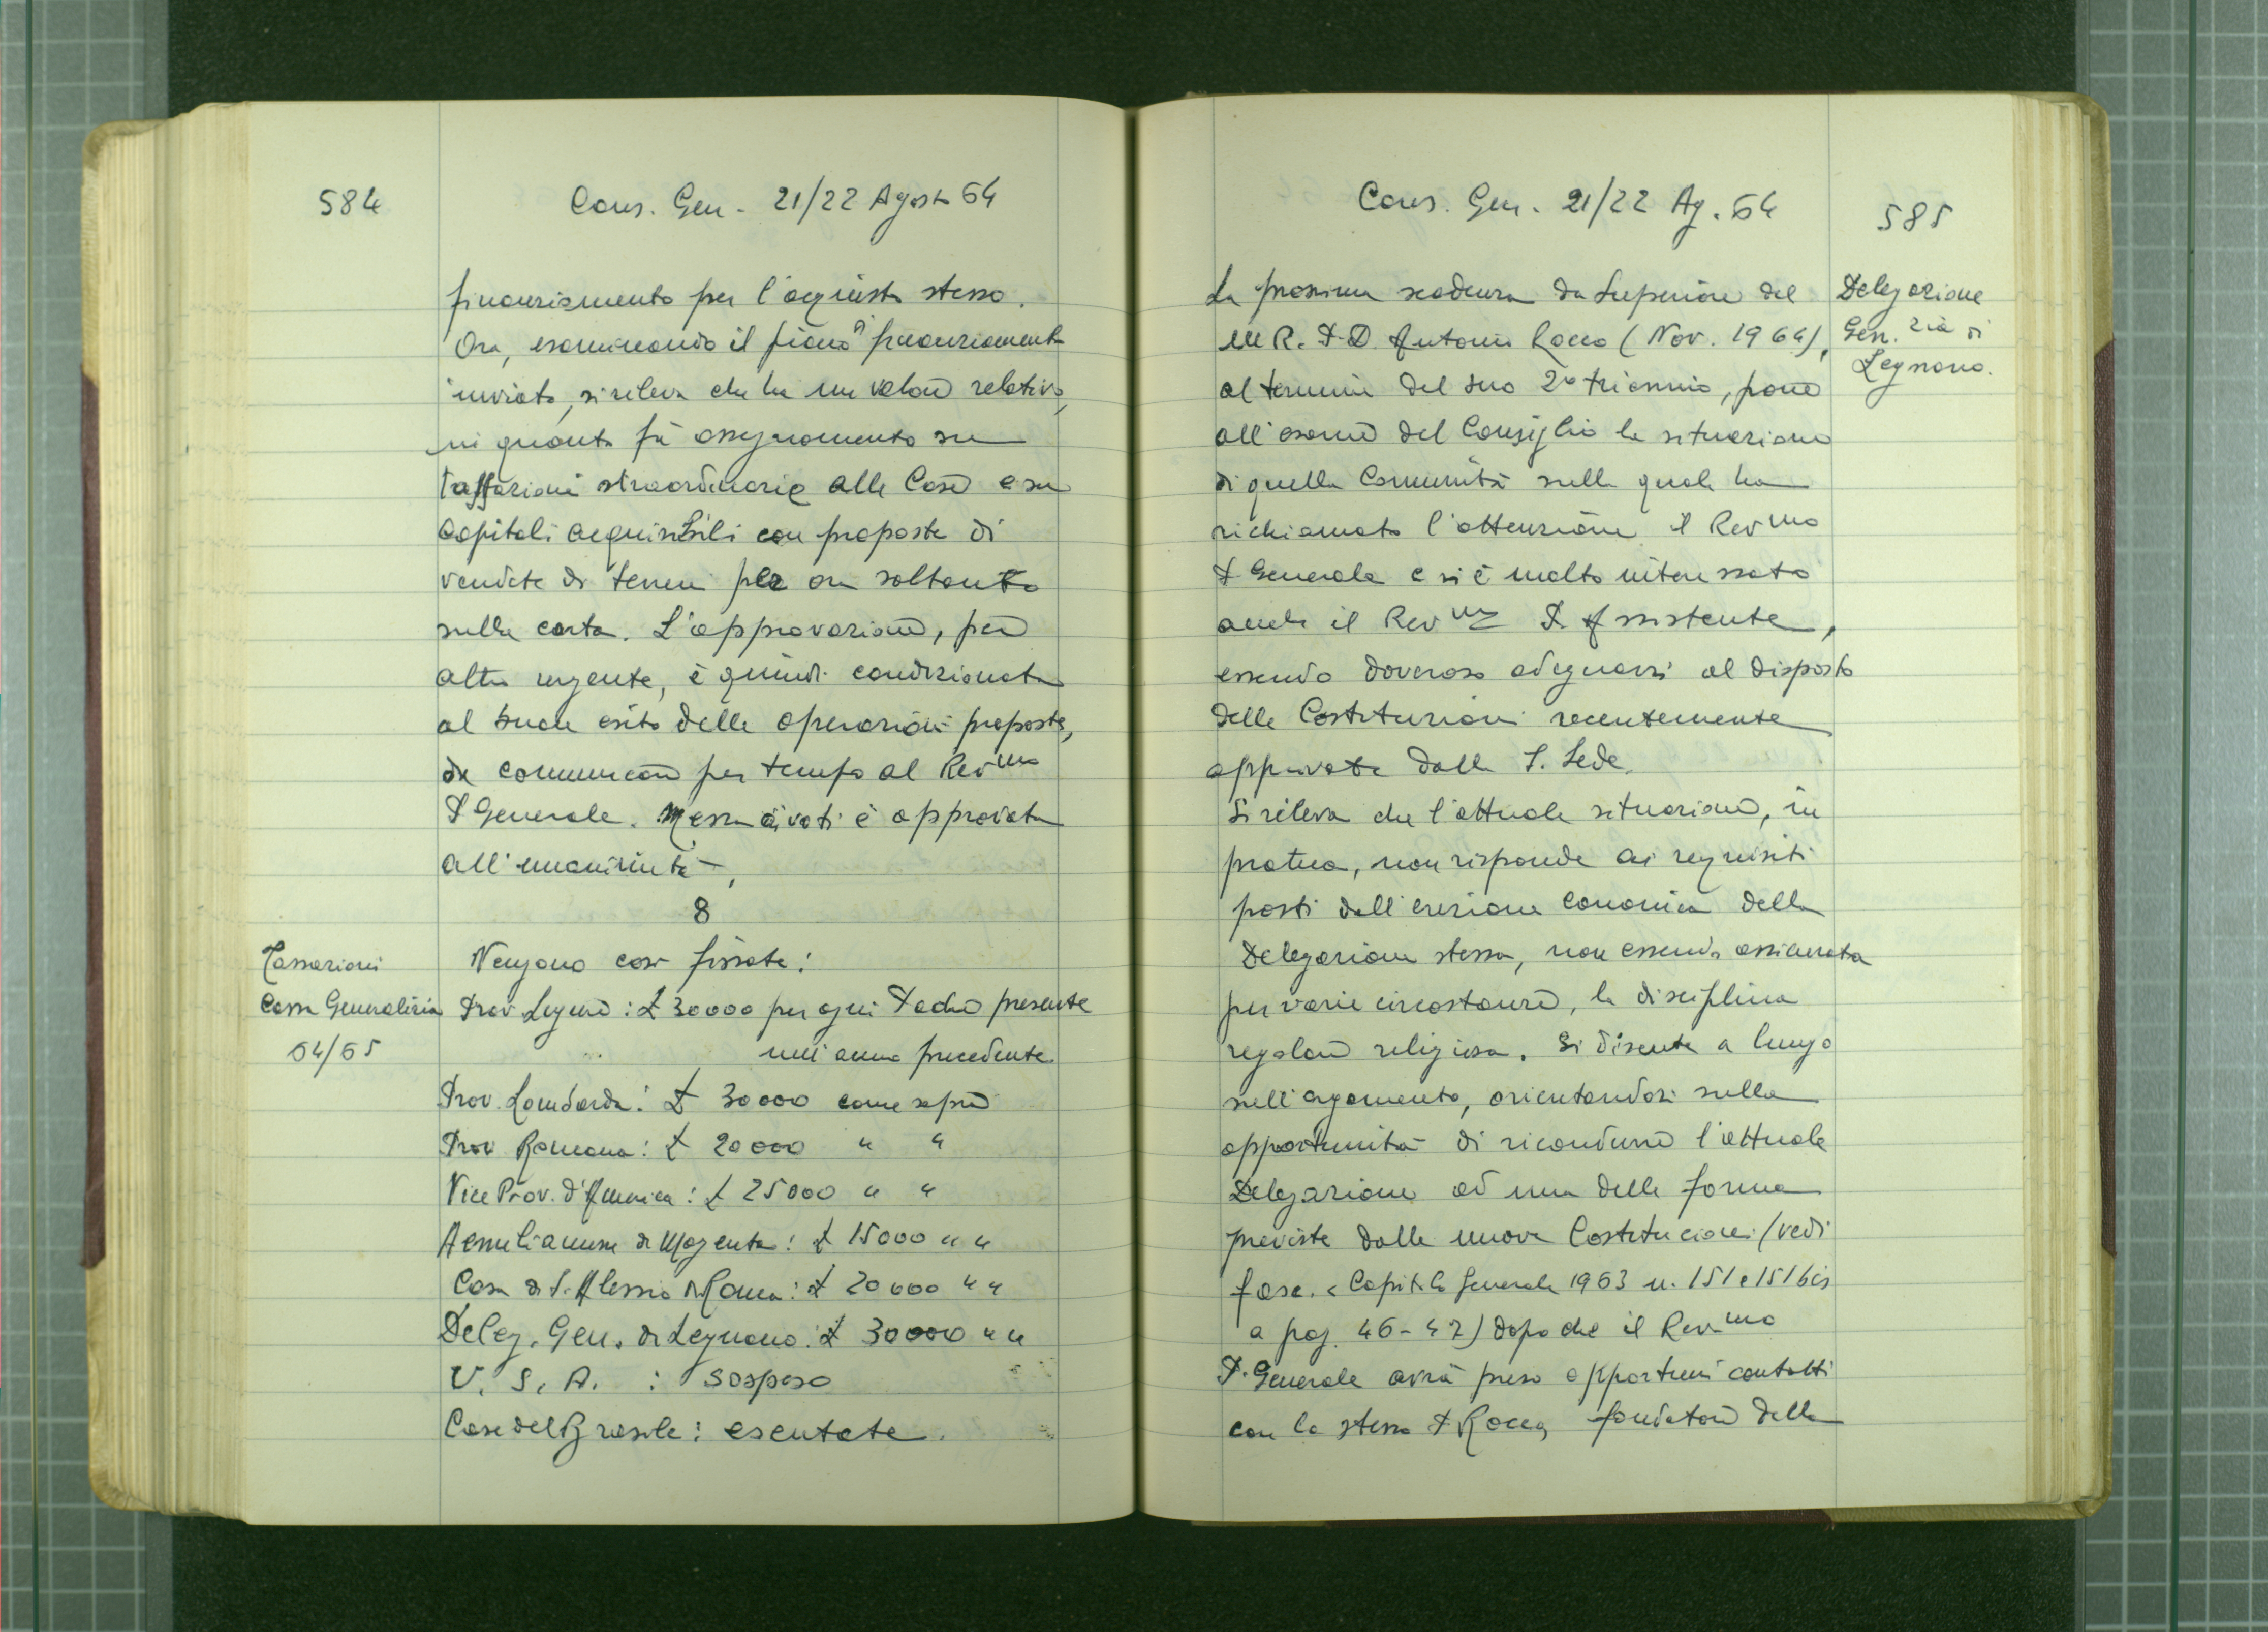 584
Cons. Gen - 21/22 Agosto 64
finanziamento per l'acquisto stesso.
Ora, esaminando il piano di finanziamento
inviato, si rileva che ha un valore relativo,
in quanto fà assegnamento su
tassazioni straordinarie alle Case e su
capitali acquisibili con proposte di
vendete di terreni per ora soltanto
sulla carta. L'approvazione, per
altro urgente, è quindi condizionata
al buon esito delle operazioni proposte,
da comunicare per tempo al Rev.mo
P Generale. Messa ai voti è approvata
all'unanimità,
8
Tassazioni
Cassa Generalizia
64/65
Vengono così fissate:
Prov Ligure: £ 30000 per ogni Padre presente
nell'anno precedente
Prov. Lombarda: £ 30000 come sopra
Prov Romana: £ 20000 " "
Vice Prov. d'America: £ 25000 " "
Aemilianum di Magenta: £ 15000 " "
Casa di S. Alessio Roma: £ 20000 " "
Deleg. Gen. di Legnano: £ 30000 " "
U. S. A. : sospeso
Case del Brasile: esentate.
Cons. Gen. 21/22 Ag. 64
585
Delegazione
Gen.zia di
Legnano.
La prossima scadenza da Superiore del
M R. P. D. Antonio Rocco (Nov. 1964),
al termine del suo 2º triennio, pone
all'esame del Consiglio la situazione
di quella Comunità sulla quale ha
richiamato l'attenzione il Rev.mo
P Generale e si è molto interessato
anche il Rev.mo P. Assistente,
essendo doveroso adeguarsi al disposto
delle Costituzioni recentemente
approvate dalla S. Sede.
Si rileva che l'attuale situazione, in
pratica, non risponde ai requisiti
posti dall'erezione canonica della
Delegazione stessa, non essendo assicurata
per varie circostanze, la disciplina
regolare religiosa. Si discute a lungo
sull'argomento, orientandosi sulla
opportunità di ricondurre l'attuale
Delegazione ad una delle forme
previste dalle nuove Costituzioni (vedi
fasc. < Capitolo Generale 1963 n. 151 e 151bis
a pag. 46-47) dopo che il Rev.mo
P. Generale avrà preso opportuni contatti
con lo stesso P. Rocco, fondatore della